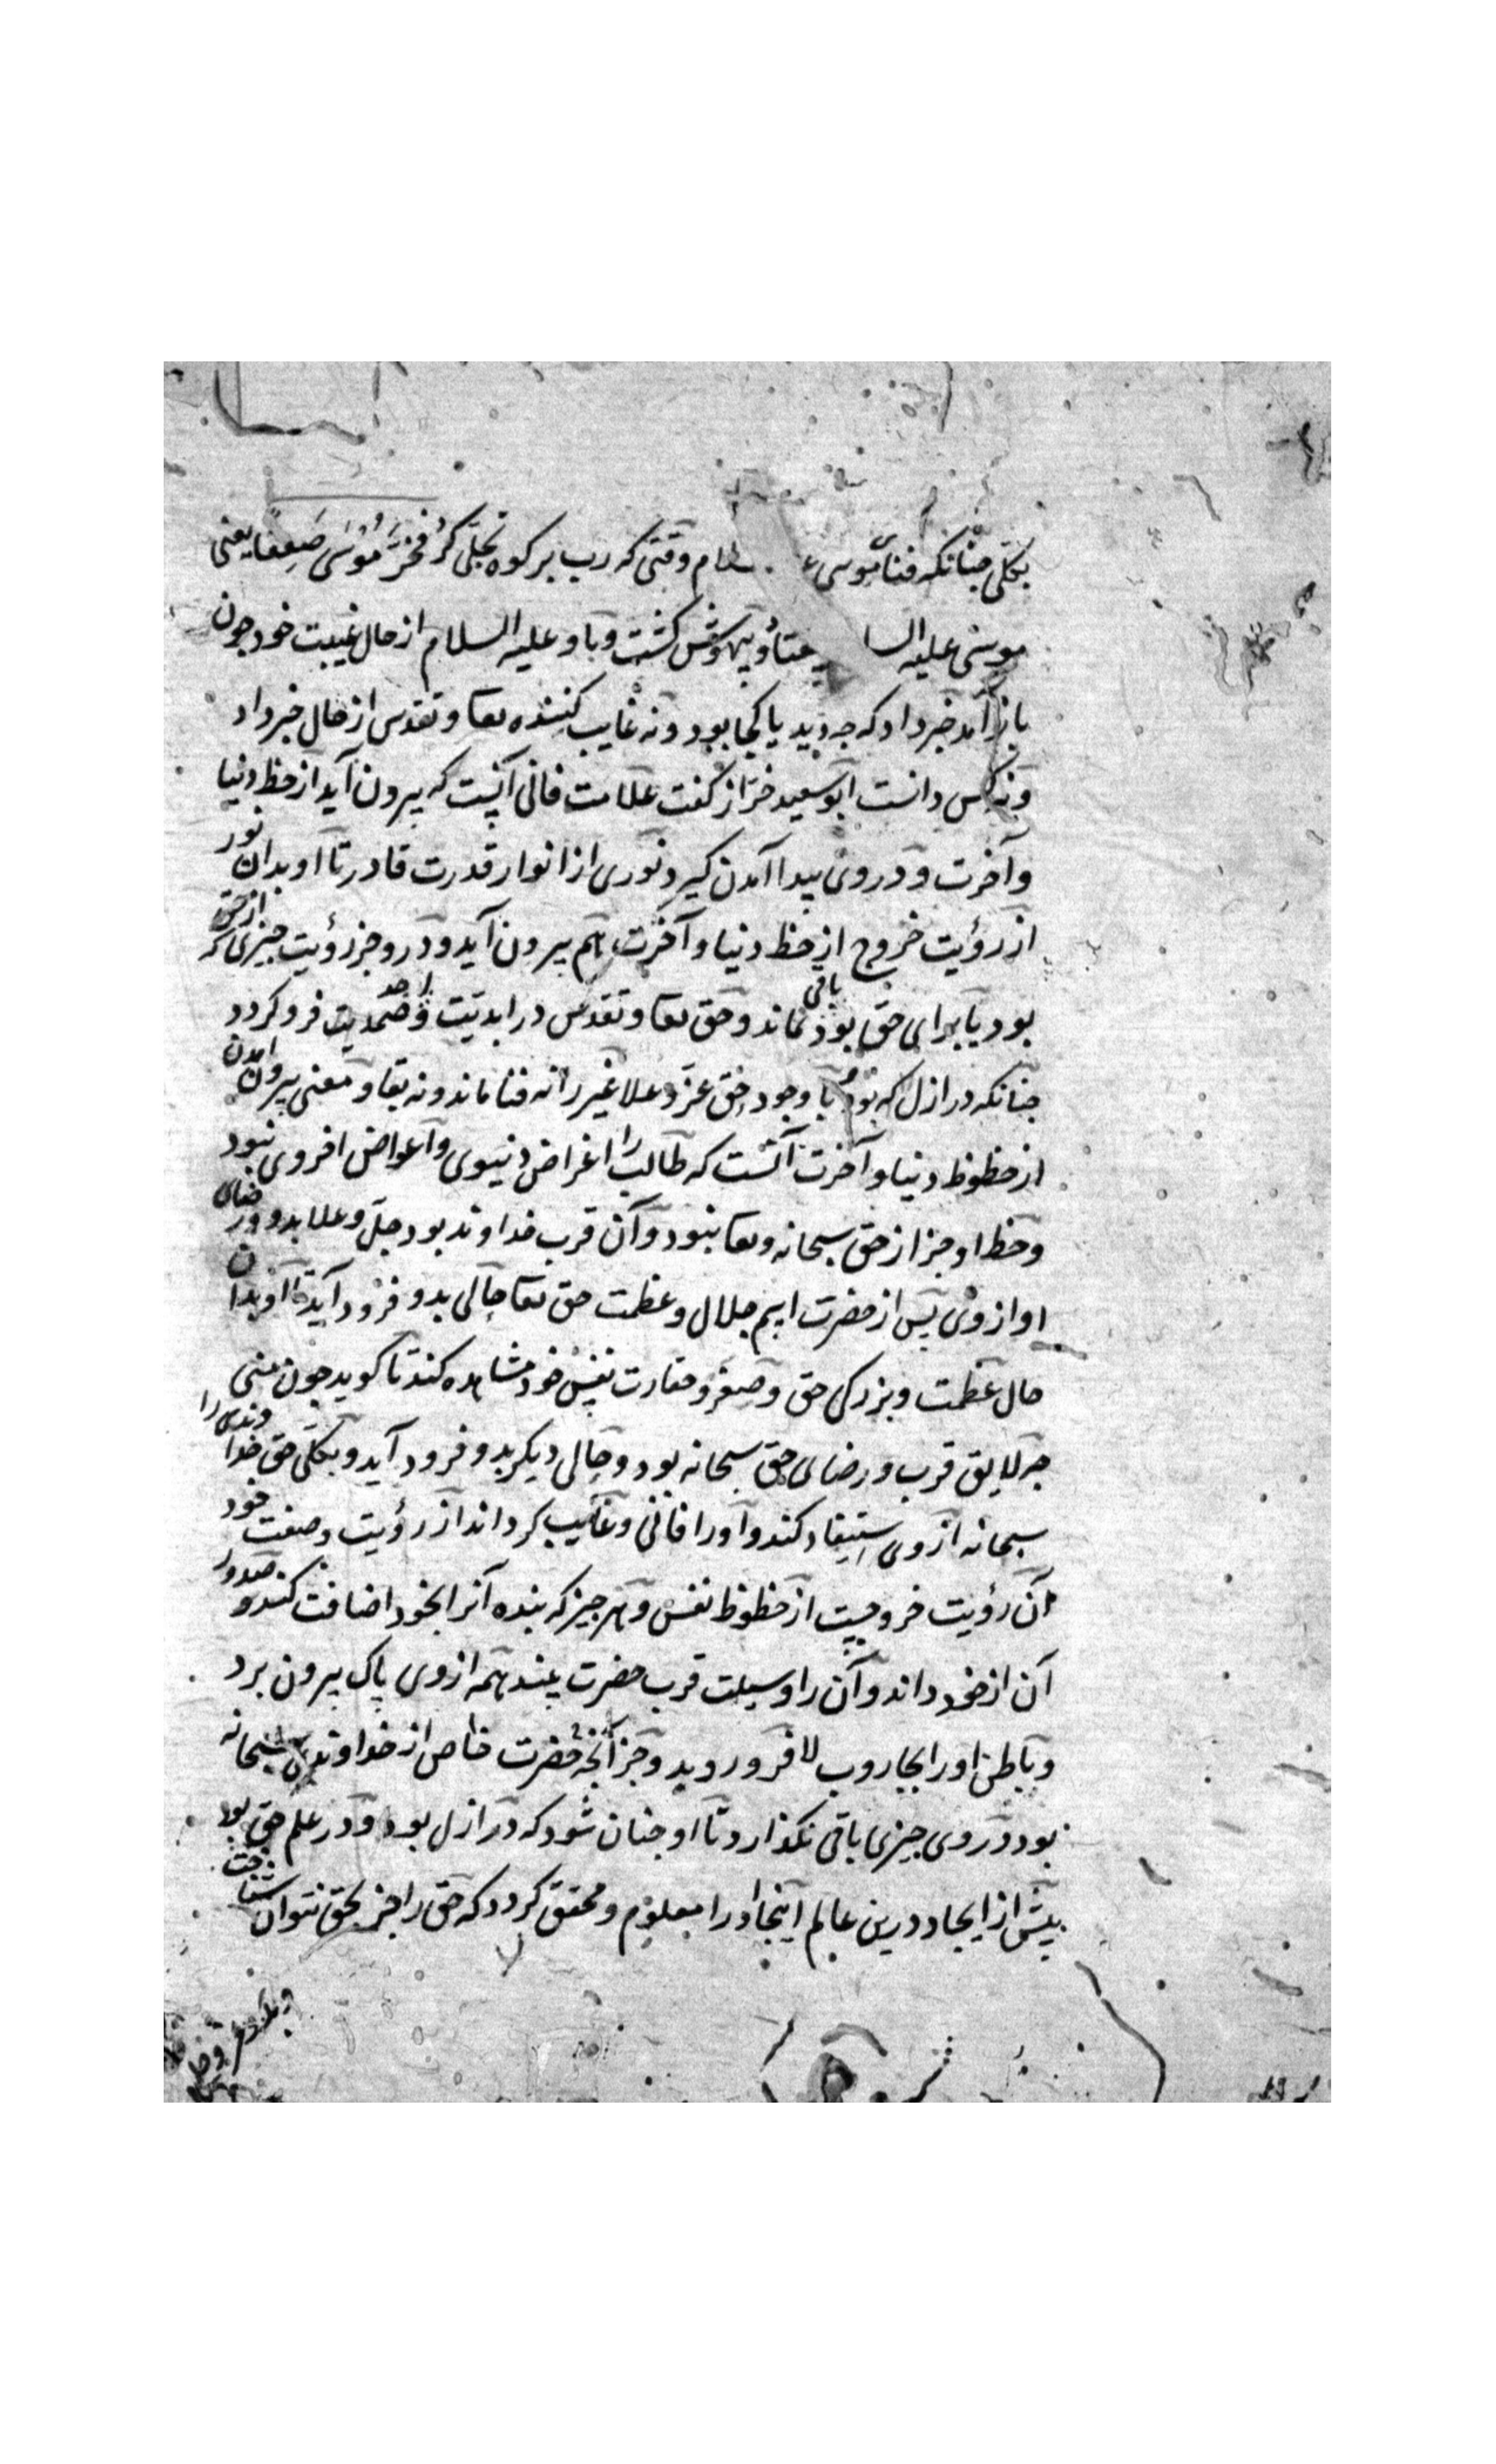 بکلی جنانکه فنای موسی علیه السلام وقتی که رب بر کوه تجلی کرد فخر موسی صعقا یعنی
موسی علیه السلام بیفتاد و بیهوش کشت و با و علیه السلام از حال غیبت خود جون
باز آمد خبر داد که جه دید یا کجا بود و نه غایب کننده تعا و تقدس از حال خبر داد
ونه کس دانست ابو سعید خراز کفت علامت فانی آنست که بیرون آید از حظ دنیا
و آخرت و در وی پیدا آمدن کیرد نوری از انوار قدرت قادر تا او بدان نور
از رؤیت خروج از حظ دنیا و آخرت هم بیرون آید و در و جز رؤیت جیزی که از حق
بود یا برای حق بود باقی نماند و حق تعا و تقدس در ابدیت و صمدیت فرو کردد
جنانکه در ازل که بود با وجود حق عز و علا غیر را نه فنا ماند و نه بقا و معنی بیرون آمدن
از حظوظ دنیا و آخرت آنست که طالب را اغراض دنیوی و اعواض اخروی نبود
و حظ او جز از حق سبحانه و تعا نبود و آن قرب خداوند بود جل و علا بدو و رضای
او از وی پس از حضرت ایم جلال و عظمت حق تعا حالی بدو فرود آید تا او بدان
حال عظمت و بزرکی حق و صغر و حقارت نفس خود مشاهده کند تا کوید جون منی
جه لایق قرب و رضای حق سبحانه بود و حالی دیکر بدو فرود آید و بکلی حق خداوندی را
سبحانه از وی استیفاد کند و او را فانی و غایب کرداند از رؤیت صفت خود
آن رؤیت خروجیت از حظوظ نفس و هر جیز که بنده آنرا بخود اضافت کند و صدور
آن از خود داند و آن را وسیلت قرب حضرت بیند همه از وی پاک بیرون برد
و باطن او را بجاروب لا فرو روید و جز آنجه حضرت خاص از خداوندی سبحانه
بود در وی جیزی باقی نکذارد تا او جنان شود که در ازل بود و در علم حق بود
پیش از ایجاد درین عالم اینجا او را معلوم و محقق کردد که حق را جز بحق نتوان شناخت